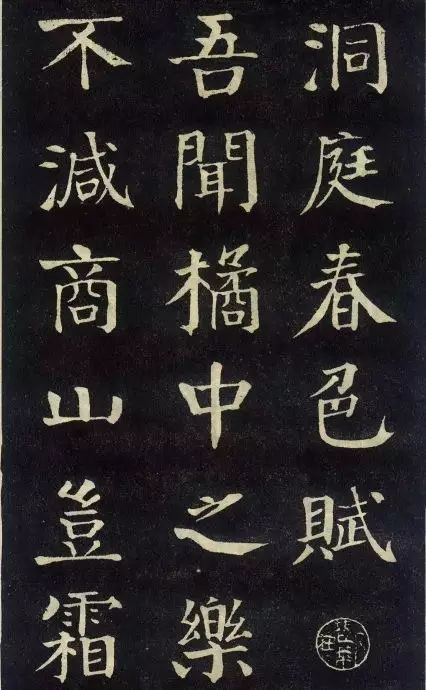 洞庭春色賦
吾聞橘中之樂
不減商山豈霜